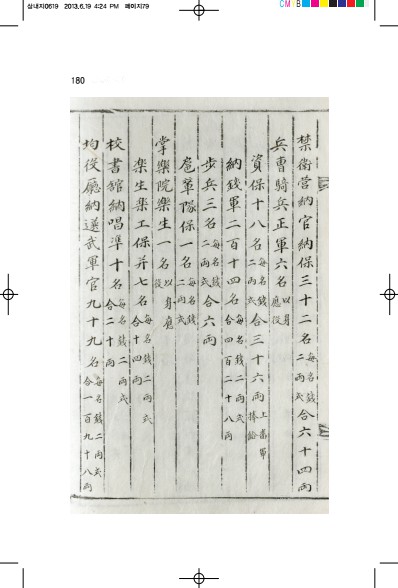 삼내지0619 2013.6.19 4:24 PM 페이지79
CM
180
禁衛營納官納保三十二名每名錢二兩式合六十四兩
兵曹騎兵正軍六名以身應役
資保十八名每名錢二兩式合三十六兩上番軍捧給
納錢軍二百十四名每名錢二兩式合四百二十八兩
步兵三名每名錢二兩式合六兩
扈輦隊保一名每名錢二兩式
掌樂院樂生一名以身應役
樂生樂工保并七名每名錢二兩式合十四兩
校書館納唱準十名每名錢二兩式合二十兩
均役廳納選武軍官九十九名每名錢二兩式合一百九十八兩